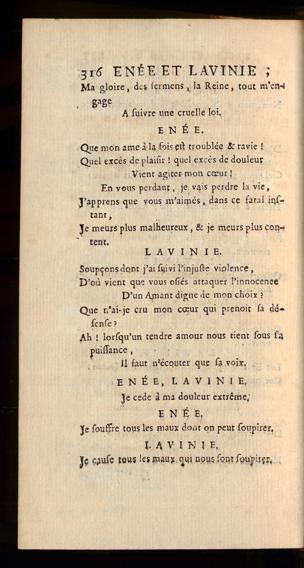 316 ENÉE ET LAVINIE ;
Ma gloire, des sermens, la Reine, tout m'en-
gage
A suivre une cruelle loi.
ENÉE.
Que mon ame à la fois est troublée & ravie !
Quel excés de plaisir ! quel excés de douleur
Vient agiter mon cœur !
En vous perdant, je vais perdre la vie,
J'apprens que vous m'aimés, dans ce fatal ins-
tant,
Je meurs plus malheureux, & je meurs plus con-
tent.
LAVINIE.
Soupçons dont j'ai suivi l'injuste violence,
D'où vient que vous osiés attaquer l'innocence
D'un Amant digne de mon choix ?
Que n'ai-je cru mon cœur qui prenoit sa dé-
fense ?
Ah ! lorsqu'un tendre amour nous tient sous sa
puissance,
Il faut n'écouter que sa voix.
ENÉE, LAVINIE.
Je cede à ma douleur extrême,
ENÉE,
Je souffre tous les maux dont on peut soupirer.
LAVINIE,
Je cause tous les maux qui nous font soupirer.